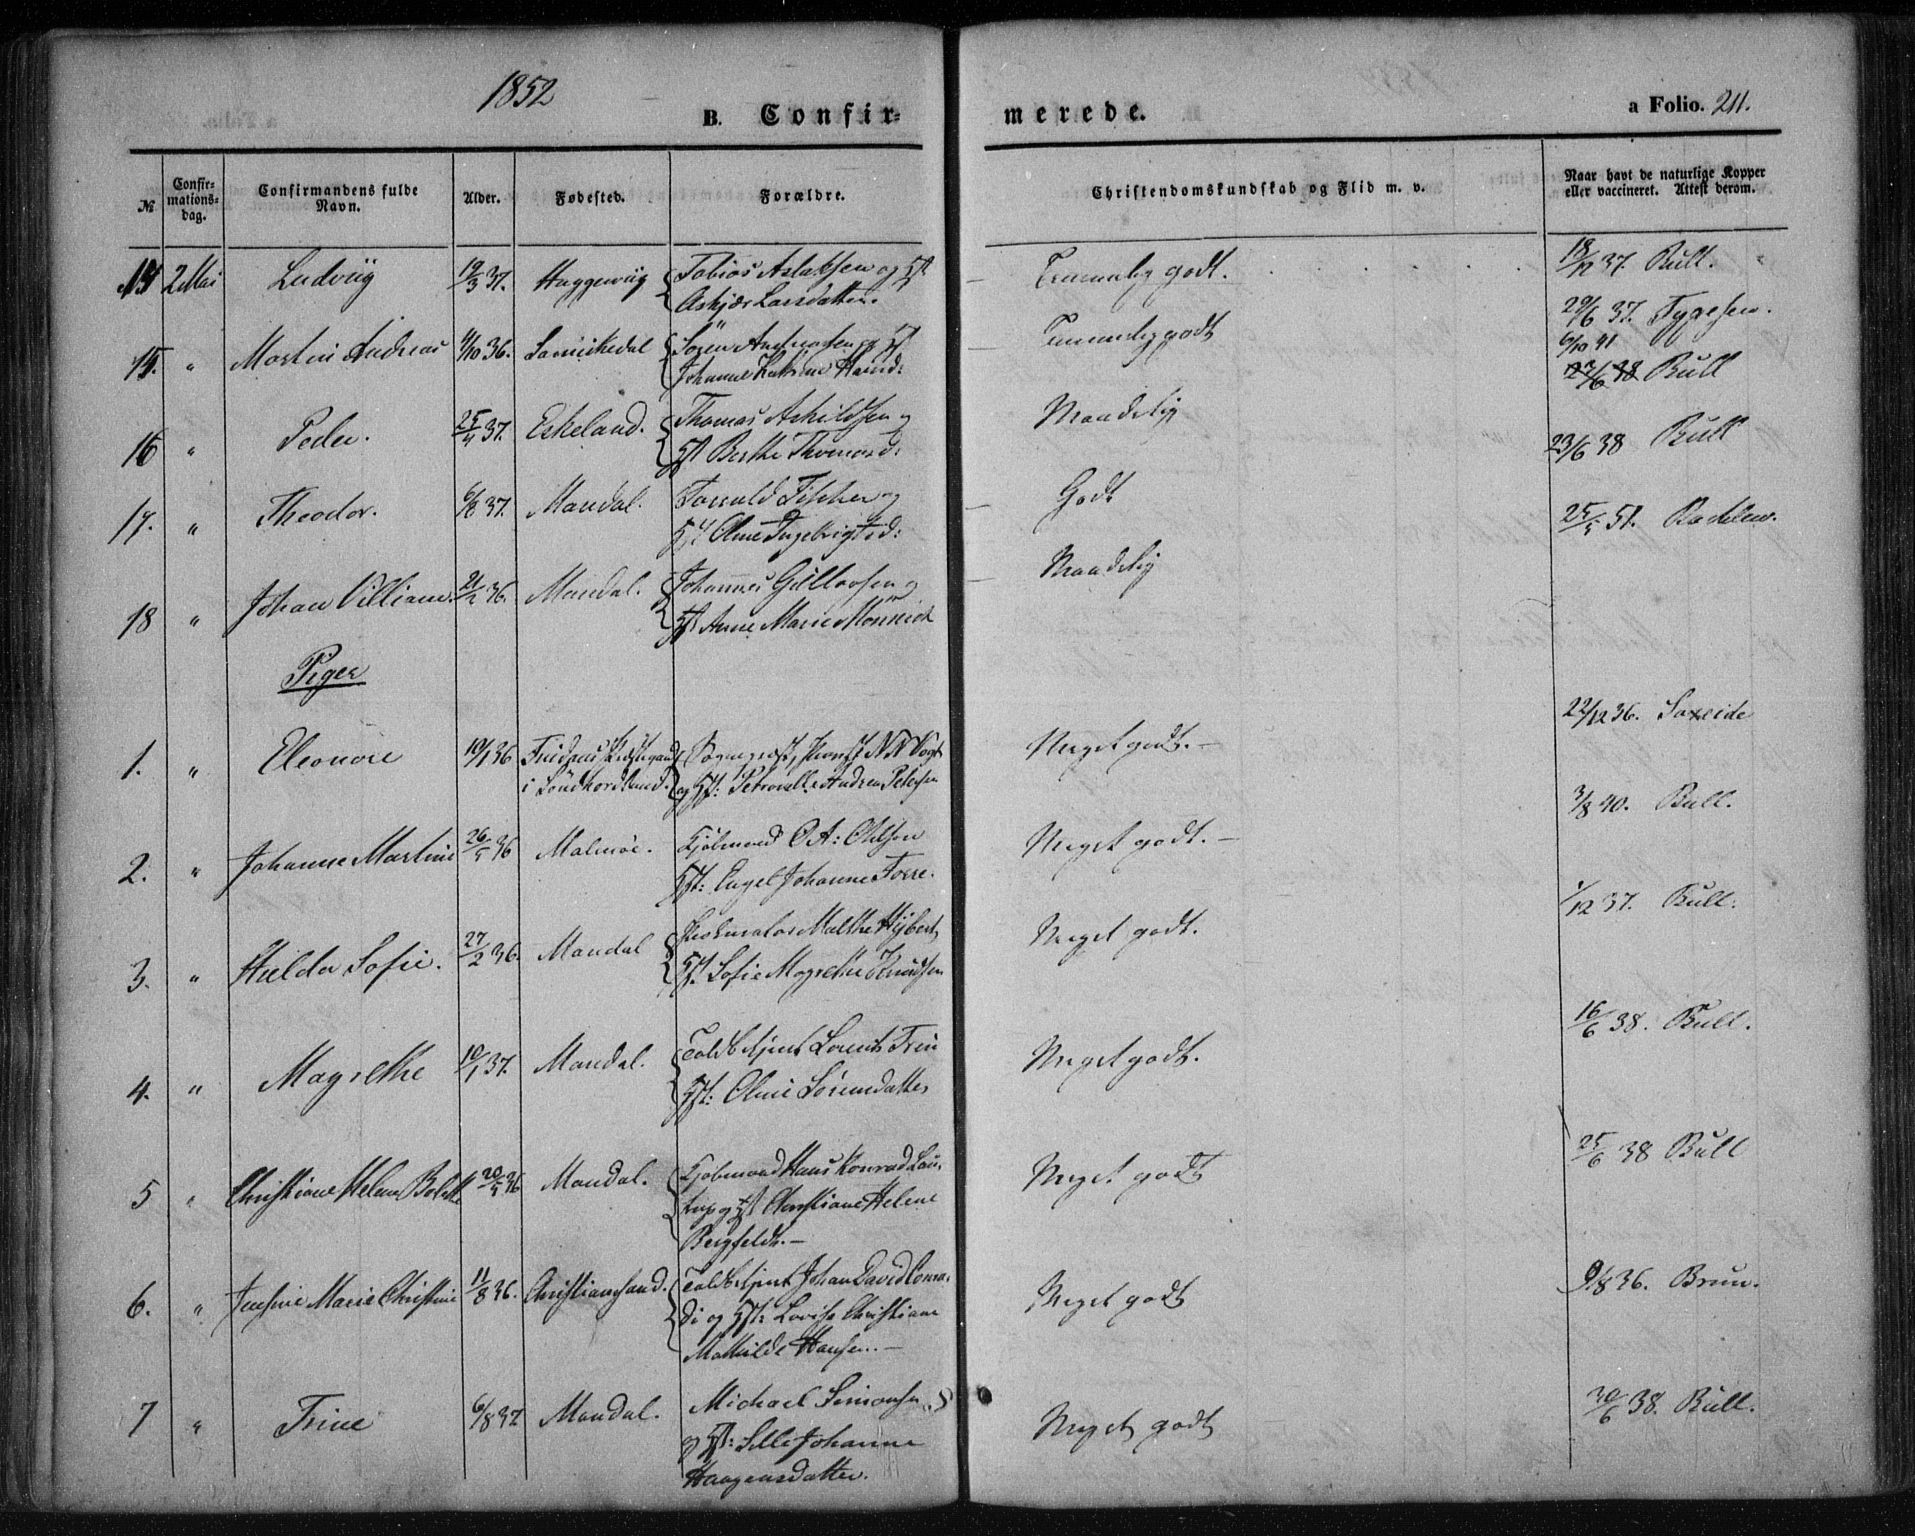 1852
B. Confir-
merede.
a Folio. 211.
No
Confir-
mations-
dag.
Confirmandens fulde
Navn.
Alder.
Fødested.
Forældre.
Christendomskundskab og Flid m. v.
Naar havt de naturlige Kopper
eller vaccineret. Attest derom.
2 Mai Ludvig 19/3 37. Haggevig Tobias Aslaksen og
Askjær Larsdatter.
Temmelig godt. 37. Bull.
15. " Martin Andreas 10 36. Søren Andreasen og Hst
Johanne
Temmelig godt 29/6 37. Tygesen.
6/10 41
22/6 38 Bull
16 " Peder. 25/4 37. Eskeland. Thomas Askildsen og
Hst Berthe Thomasd:
Maadelig 23/6 38 Bull
17. " Theodor. 6/8 37. Mandal. og
Hst Olene Ingebrigtsd:
Godt 25/5 51.
18 " Johan Villiam. 21/2 36. Mandal. Johannes Gullovsen og
Hst Anne Marie Mønnich
Maadelig
Piger
1. " Eleonore 10/1 36
i Søndhordland. Sogneprest,
og Hst: Petronelle Andrea Petersen
Meget godt. – 22/12 36.
2. " Johanne Martine 26/5 36 Malmøe. Kjøbmand O A: Olsson
Hst: Engel Johanne Torre.
Meget godt. – 3/8 40. Bull.
3. " Hilda Sofie. 27/2 36. Mandal Malthe
Hst. Sofie Magrethe Knudsen
Meget godt. 1/12 37. Bull.
4. " Magrethe 10/1 37. Mandal. Toldbetjent Lorents
Hst: Oline Sørensdatter
Meget godt. 16/6 38. Bull.
5 " Christiane Helene Bolette 20/5 36 Mandal. Kjøbmand Hans Konrad Lau-
trup og Hst Christiane Helene
Bergfeldt. –
Meget godt 25/6 38 Bull
6. " Jensine Marie Christine 11/8 36. Christianssand. Toldbetjent Johan David Conra-
di og Hst: Lovise Christiane
Mathilde Hansen. –
Meget godt 9/8 36. Brun.
7 " Trine 6/8 37 Mandal. Michael Simonsen
og Hst: Sille Johanne
Haagensdatter.
Meget godt 30/6 38. Bull.